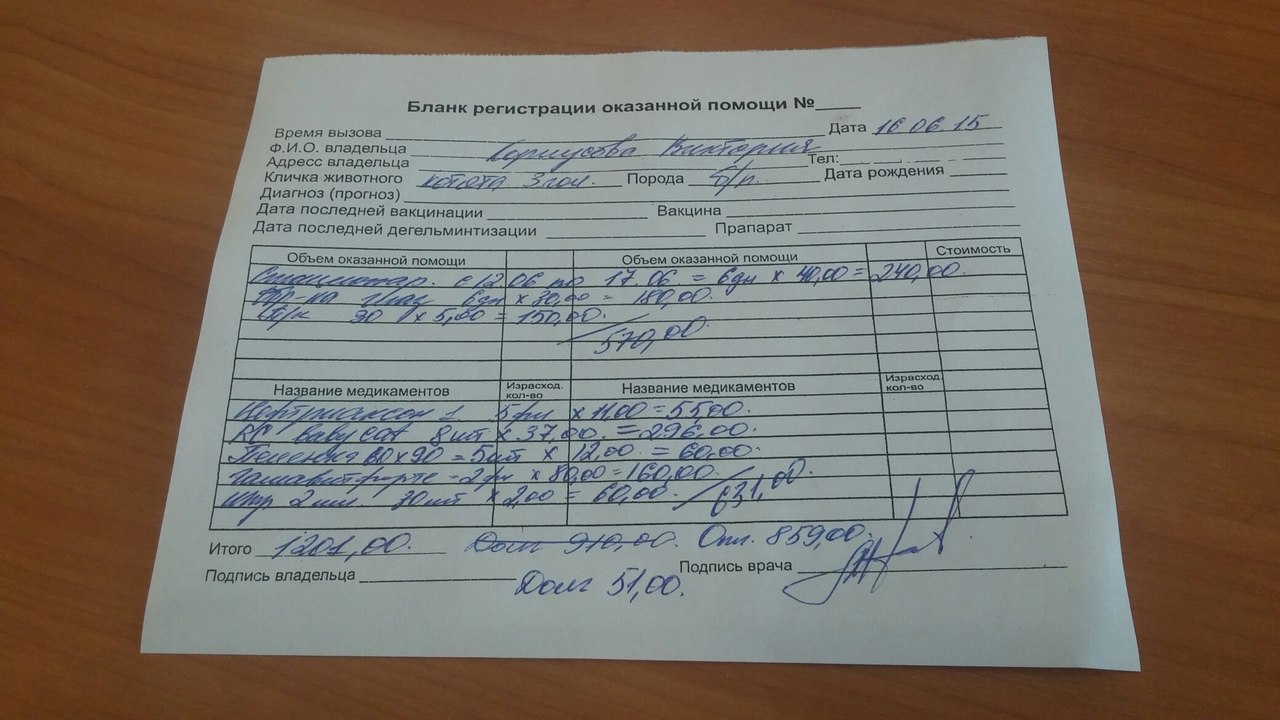 Бланк регистрации оказанной помощи №
Время вызова Дата 16.06.15
Ф.И.О. владельца Виктория
Адресс владельца Тел:
Кличка животного котята 3 гол. Порода б/п. Дата рождения
Диагноз (прогноз)
Дата последней вакцинации Вакцина
Дата последней дегельминтизации Прапарат
Объем оказанной помощи Объем оказанной помощи Стоимость
Стационар. с 12.06 по 17.06 = 6дн х 40,00 = 240,00.
6дн х 30,00 = 180,00.
30 х 5,00 = 150,00.
570,00.
Название медикаментов Израсход. кол-во Название медикаментов Израсход. кол-во
Цефтриаксон 5фл х 11.00 = 55,00.
RC babycat 8шт х 37,00. = 296,00.
Пеленка 60х90 = 5шт х 12.00 = 60,00.
Гамавит форте - 2фл х 80,00 = 160,00.
Шпр 2мл. 30шт х 2,00 = 60,00. 631,00
Итого 1201,00. Долг 910,00. Опл. 859,00.
Подпись владельца Подпись врача
Долг 51,00.